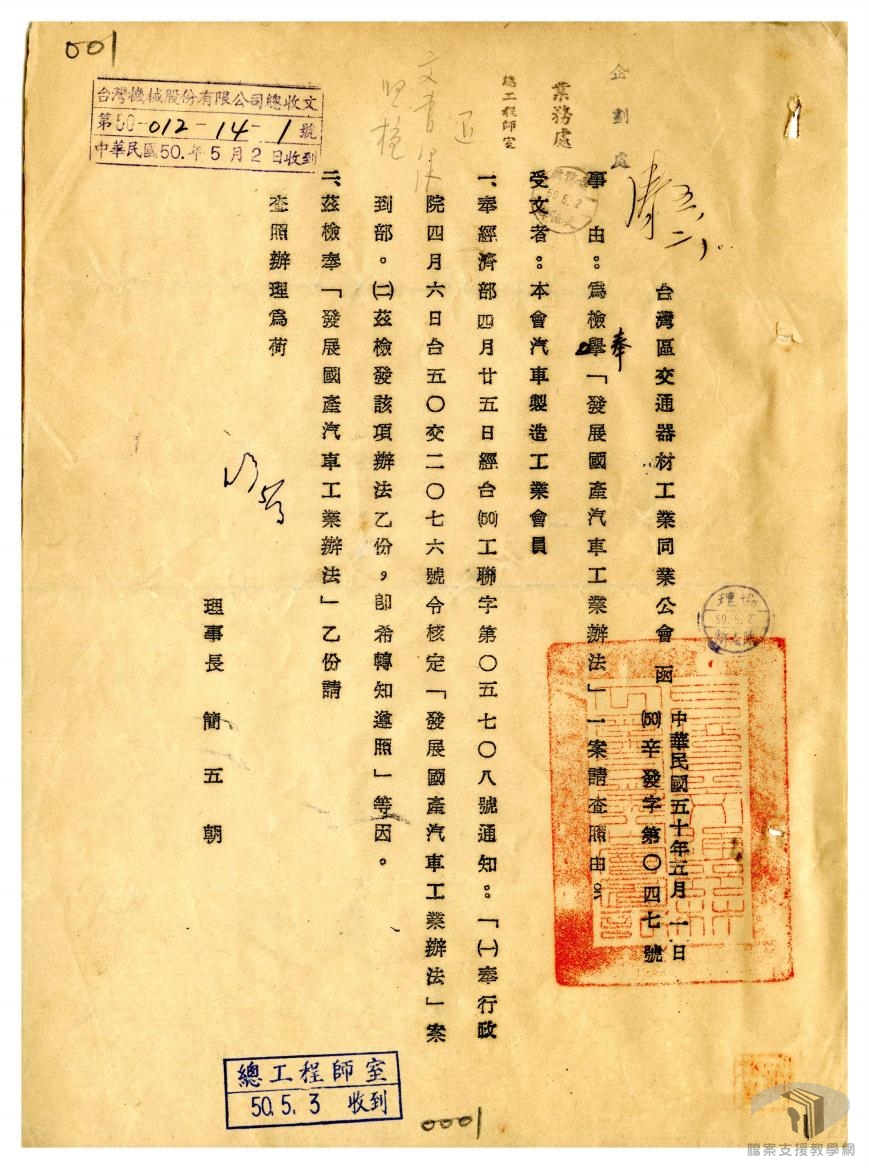 001
台灣機械股份有限公司總收文
第50-012-14-1號
中華民國50.年5月2日收到
企劃處
業務處
總工程師室
台灣區交通器材工業同業公會 函
中華民國五十年五月一日
(50)辛發字第〇四七號
事 由：爲檢奉「發展國產汽車工業辦法」一案請查照由：
受文者：本會汽車製造工業會員
一、奉經濟部四月廿五日經台(50)工聯字第〇五七〇八號通知：「㈠奉行政
院四月六日台五〇交二〇七六號令核定「發展國產汽車工業辦法」案
到部。㈡茲檢發該項辦法乙份，卽希轉知遵照」等因。
二、茲檢奉「發展國產汽車工業辦法」乙份請
查照辦理爲荷
理事長 簡五朝
總工程師室
50.5.3 收到
0001
檔案支援教學網